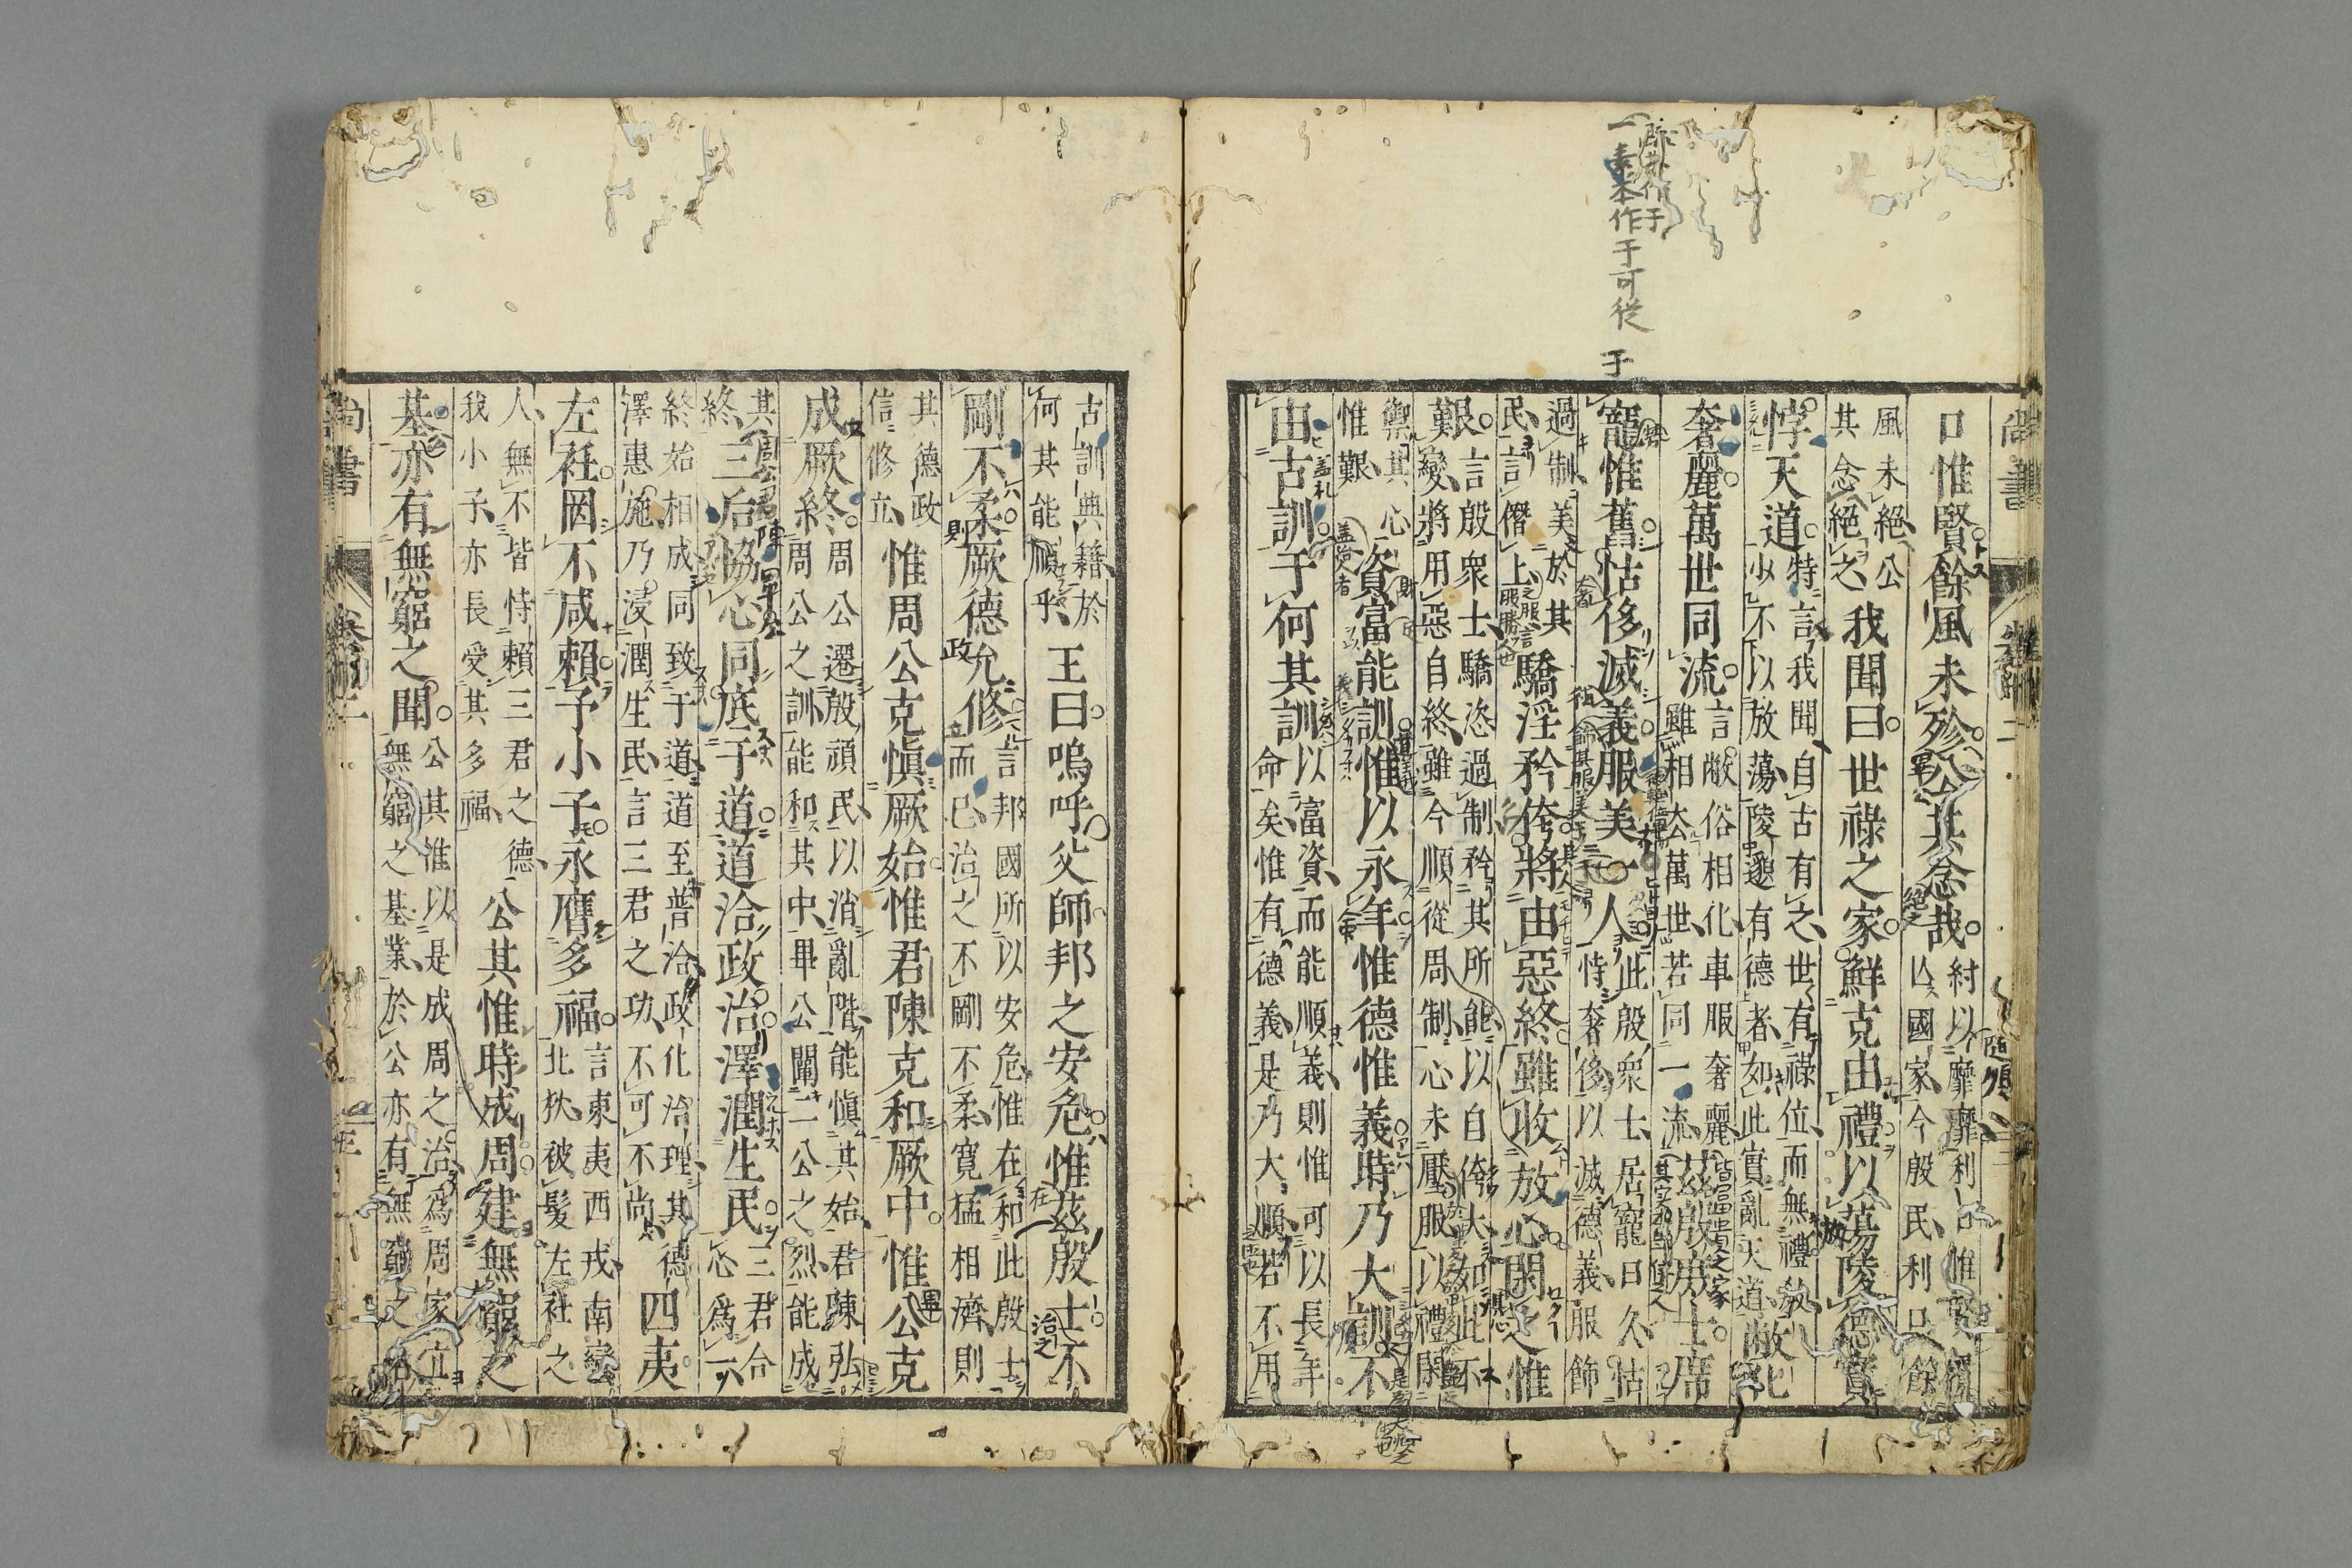 尚書
口惟賢餘風未殄公其念哉
紂以靡靡利口惟賢覆
亡國家今殷民利口餘
風未絕公
其念絕之
我聞曰世祿之家鮮克由禮以蕩陵德實
悖天道
特言我聞自古有之世有祿位而無禮放
少不以放蕩陵邈有德者如此實亂天道
敝化
奢麗萬世同流
言敝俗相化車服奢麗
雖相去萬世若同一流
茲殷庶士席
寵惟舊怙侈滅義服美一人
此殷衆士居寵日久怙
恃奢侈以滅德義服飾
過制美於其
民言僭上
驕淫矜侉將由惡終雖收放心閑之惟
艱
言殷衆士驕恣過制矜其所能以自侉大如此不
變將用惡自終雖今順從周制心未壓服以禮閑
禦其心
惟艱
資富能訓惟以永年惟德惟義時乃大訓不
由古訓于何其訓
以富資而能順義則惟可以長年
命矣惟有德義是乃大順若不用
一素本作于可從
于
古訓典籍於
何其能順乎
王曰嗚呼父師邦之安危惟茲殷士不
剛不柔厥德允修
言邦國所以安危惟在和此殷士
而已治之不剛不柔寬猛相濟則
其德政
信修立
惟周公克愼厥始惟君陳克和厥中惟公克
成厥終
周公遷殷頑民以消亂階能愼其始君陳弘
周公之訓能和其中畢公闡二公之烈能成
其
終
三后協心同底于道道洽政治澤潤生民
三君合
心爲一
終始相成同致于道道至普洽政化治理其德
澤惠施乃浸潤生民言三君之功不可不尚
四夷
左衽罔不咸賴予小子永膺多福
言東夷西戎南蠻
北狄被髮左衽之
人無不皆恃賴三君之德
我小子亦長受其多福
公其惟時成周建無窮之
基亦有無窮之聞
公其惟以是成周之治爲周家立
無窮之基業於公亦有無窮之
尚書